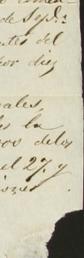 de Sep:
tes del
or diez
ales,
s la
os delos
el 27. y
iones